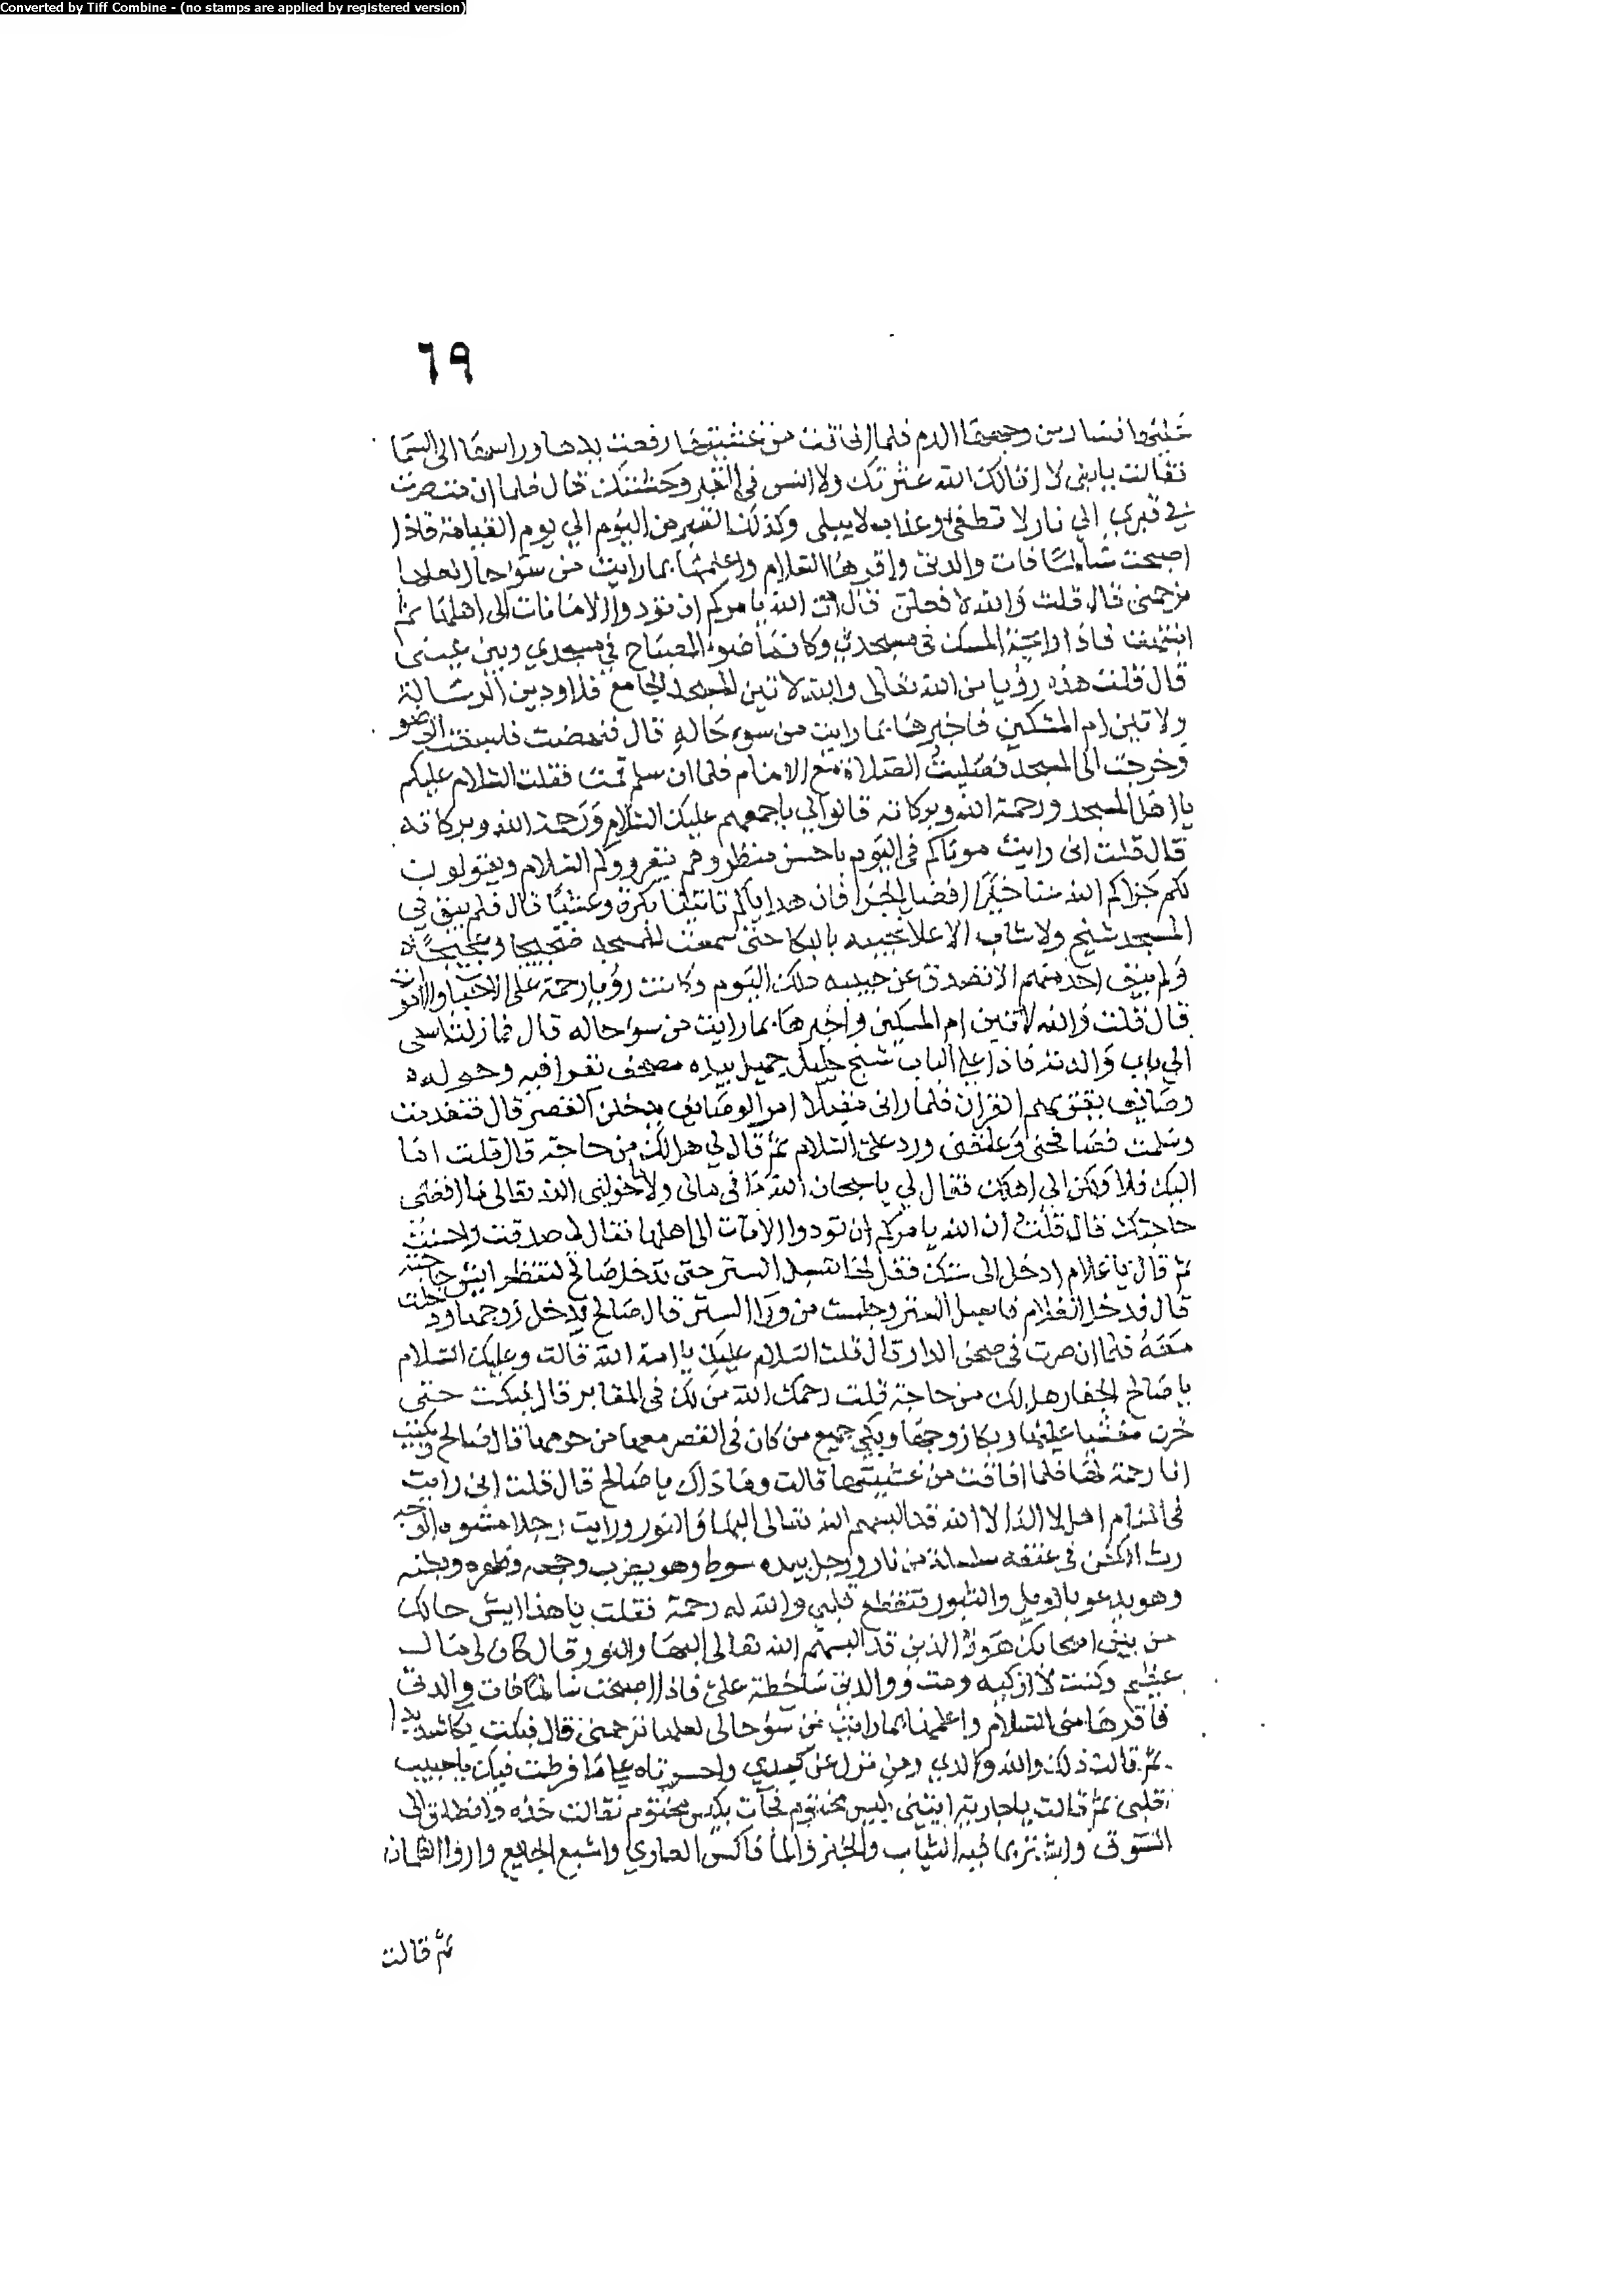 Converted by Tiff Combine - (no stamps are applied by registered version)
٦٩
وجهها الدم فلما ان رفعت يدها وراسها الى السما
فقالت يابنى لا اقالك الله عثرتك ولا انس فى القبر وحشتك قال فلما ان صرت
في قبري الي نار لا تطفى وعذاب لا يبلى وكذلك من اليوم الي يوم القيامة فاذا
اصبحت سالما فات والدتى واقرها السلام واعلمها بما رايت من سو حال لعلها
ترحمنى قال قلت والله لافعلن قال ان الله يامركم ان تؤدوا الامانات الى اهلها ثم
انتبهت فاذا رايحة المسك فى مسجدي وكانما ضوء المصباح في مسجدي وبين عينى
قال قلت هذه رؤيا من الله تعالى والله لاتين المسجد الجامع فلاودين الرسالة
ولاتين ام المسكين فاخبرها بما رايت من سوء حاله قال فنهضت فاسبغت الوضو
وخرجت الى المسجد فصليت الصلاة مع الامام فلما ان سلم قمت فقلت السلام عليكم
يا اهل المسجد ورحمة الله وبركاته قالوا لي باجمعهم عليك السلام ورحمة الله وبركاته
قال قلت انى رايت موتاكم فى اليوم باحسن منظر وهم يقروكم السلام ويقولون
لكم جزاكم الله عنا خيرا افضل الجزا فان هداياكم تاتينا بكرة وعشيا قال فلم يبق في
المسجد شيخ ولا شاب الا علا نحيبه بالبكا حتى سمعت للمسجد ضجيجا وعجيجا
ولم يبق احد منهم الا تصدق عن حبيبه ذلك اليوم وكانت رؤيا رحمة على الاحيا والاموات
قال قلت والله لاتين ام المسكين واخبرها بما رايت من سو حاله قال فما زلت اسعى
الي باب والدته فاذا علي الباب شيخ جليل جميل بيده مصحف يقرا فيه وحوله
وصايف القران فلما رانى مقبلا امر الوصايف يدخلن القصر قال فتقدمت
وسلمت فصافحنى وعانقنى ورد على السلام ثم قال لي هل لك من حاجة قال قلت اما
اليك فلا ولكن الي اهلك فقال لي يا سبحان الله فى مالى ولا خولنى الله تعالى ما اقضى
حاجتك قال قلت ان الله يامركم ان تودوا الامانات الى اهلها فقال لى صدقت واحسنت
ثم قال يا غلام ادخل الى ستك فقل لها تسبل الستر حتى يدخل صالح لتنظر ايش حاجته
قال فدخل الغلام فاسبل الستر وجلست من ورا الستر قال صالح فدخل زوجها ودخلت
معه فلما ان صرت فى صحن الدار قال قلت السلام عليك يا امة الله قالت وعليك السلام
يا صالح الحفار هل لك من حاجة قلت رحمك الله من لك فى المقابر قال فبكت حتى
خرت مغشيا عليها وبكا زوجها وبكى جميع من كان فى القصر معها من حرمها قال صالح وبكيت
انا رحمة لها فلما افاقت من غشيتها قالت وما ذاك يا صالح قال قلت انى رايت
فى المنام اهل لا اله الا الله قد البسهم الله تعالى البها والنور ورايت رجلا مشوه الوجه
رث الكفن فى عنقه سلسلة من نار ورجل بيده سوط وهو يضرب وجهه وظهره وبطنه
وهو يدعو بالويل والثبور فتقطع قلبي والله له رحمة فقلت يا هذا ايش حالك
من بين اصحابك هؤلا الذين قد البسهم الله تعالى البها والنور وقال كان لى مال
عظيم وكنت لا ازكيه ومت ووالدتى ساخطة على فاذا اصبحت سالما فات والدتى
فاقرها منى السلام واعلمها بما رايت من سوء حالى لعلها ترحمنى قال فبكت بكا شديدا
ثم قالت ذلك والله ولدي ومن نزل عن كبدي واحسرتاه على ما فرطت فيك يا حبيب
قلبى ثم قالت يا جارية ايتينى بكيس مختوم فجات بكيس مختوم فقالت خذه وانطلق الى
السوق واشترى فيه الثياب والخبز والما فاكس العاري واشبع الجايع واروا الظمان
ثم قالت